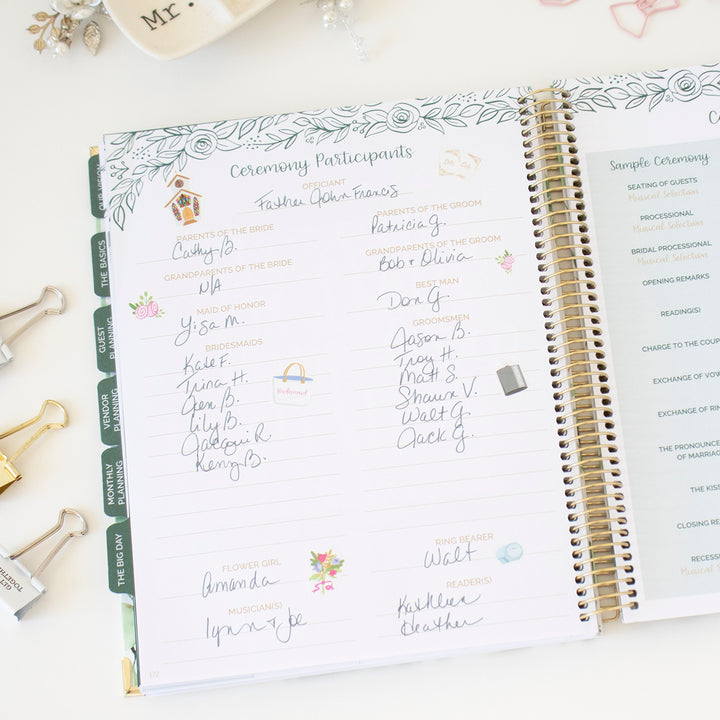 Mr.
Ceremony Participants
OFFICIANT
Father John Francis
PARENTS OF THE BRIDE
Cathy B.
GRANDPARENTS OF THE BRIDE
N/A
MAID OF HONOR
Yisa M.
BRIDESMAIDS
Kate F.
Trina H.
Jen B.
Lily B.
Jacqui R.
Kenzy B.
PARENTS OF THE GROOM
Patricia G.
GRANDPARENTS OF THE GROOM
Bob + Olivia
BEST MAN
Don G.
GROOMSMEN
Jason B.
Troy H.
Matt S.
Shaun V.
Walt G.
Jack G.
Bridesmaid
FLOWER GIRL
Amanda
MUSICIAN(S)
lynn + Joe
RING BEARER
Walt
READER(S)
Kathleen
Heather
177
OUR VISION
THE BASICS
GUEST PLANNING
VENDOR PLANNING
MONTHLY PLANNING
THE BIG DAY
GET TOGETHER
Sample Ceremony
SEATING OF GUESTS
Musical Selection
PROCESSIONAL
Musical Selection
BRIDAL PROCESSIONAL
Musical Selection
OPENING REMARKS
READING(S)
CHARGE TO THE COUP
EXCHANGE OF VOW
EXCHANGE OF RIN
THE PRONOUNCE
OF MARRIAG
THE KISS
CLOSING RE
RECESS
Musical Sele